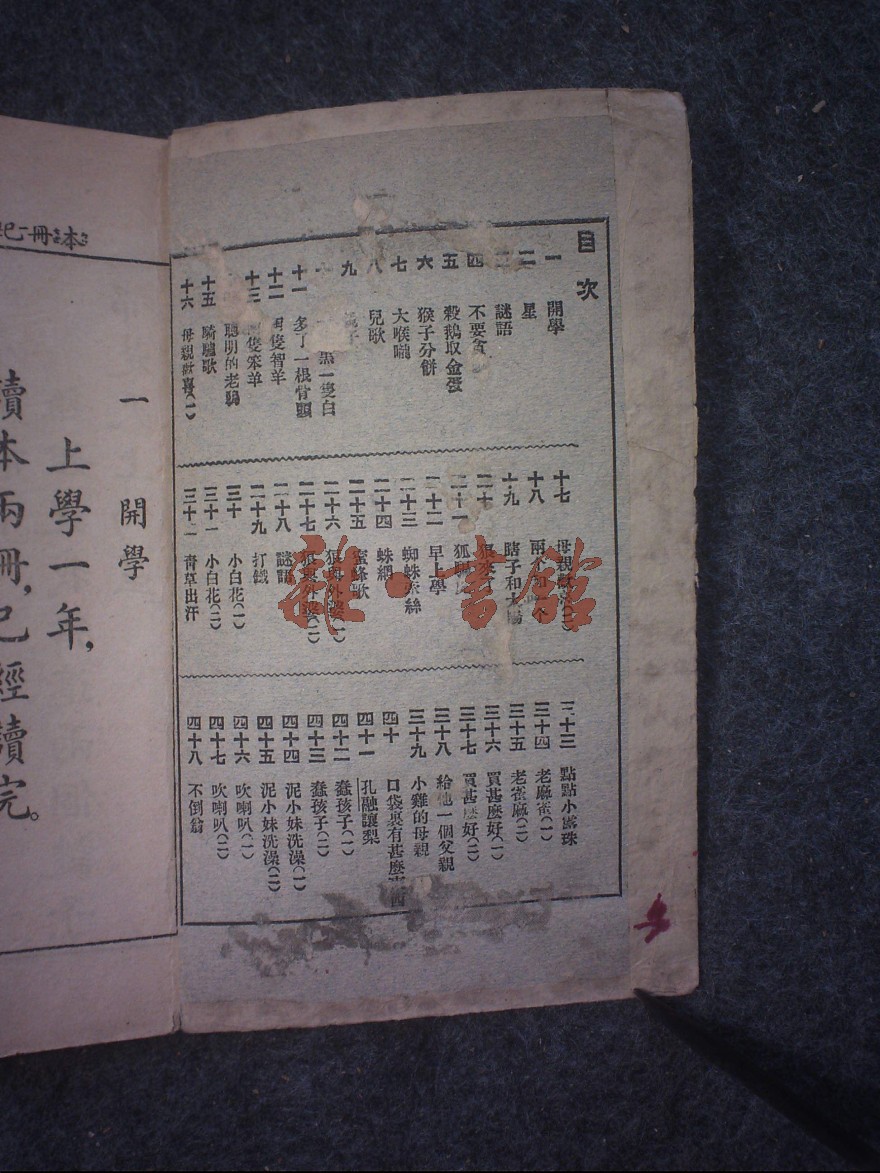 目次
一 開學
二 星
三 謎語
四 不要貪
五 殺鵝取金蛋
六 猴子分餅
七 大喉嚨
八 兒歌
九 子
黑一隻白
十一 多了一根骨頭
十二 隻智羊
十三 隻笨羊
聰明的老鴉
十五 騎驢歌
十六 母親做壽(一)
十七 母親做壽(二)
十八 兩个
十九 瞎子和太陽
二十 狼來了
二十一 狐
二十二 早上學
二十三 蜘蛛 絲
二十四 蛛網
二十五 蜜蜂歌
二十六 狼與外婆(一)
二十七 狼與外婆(二)
二十八 謎語
二十九 打鐵
三十 小白花(一)
三十一 小白花(二)
三十二 青草出汗
三十三 點點小露珠
三十四 老麻雀(一)
三十五 老雀麻(二)
三十六 買甚麼好(一)
三十七 買甚麼好(二)
三十八 給他一個父親
三十九 小雞的母親
四十 口袋裏有甚麼東西
四十一 孔融讓梨
四十二 蠢孩子(一)
四十三 蠢孩子(二)
四十四 泥小妹洗澡(一)
四十五 泥小妹洗澡(二)
四十六 吹喇叭(一)
四十七 吹喇叭(二)
四十八 不倒翁
本 冊
一 開學
上學一年,
讀本兩冊,已經讀完。
雜·書館